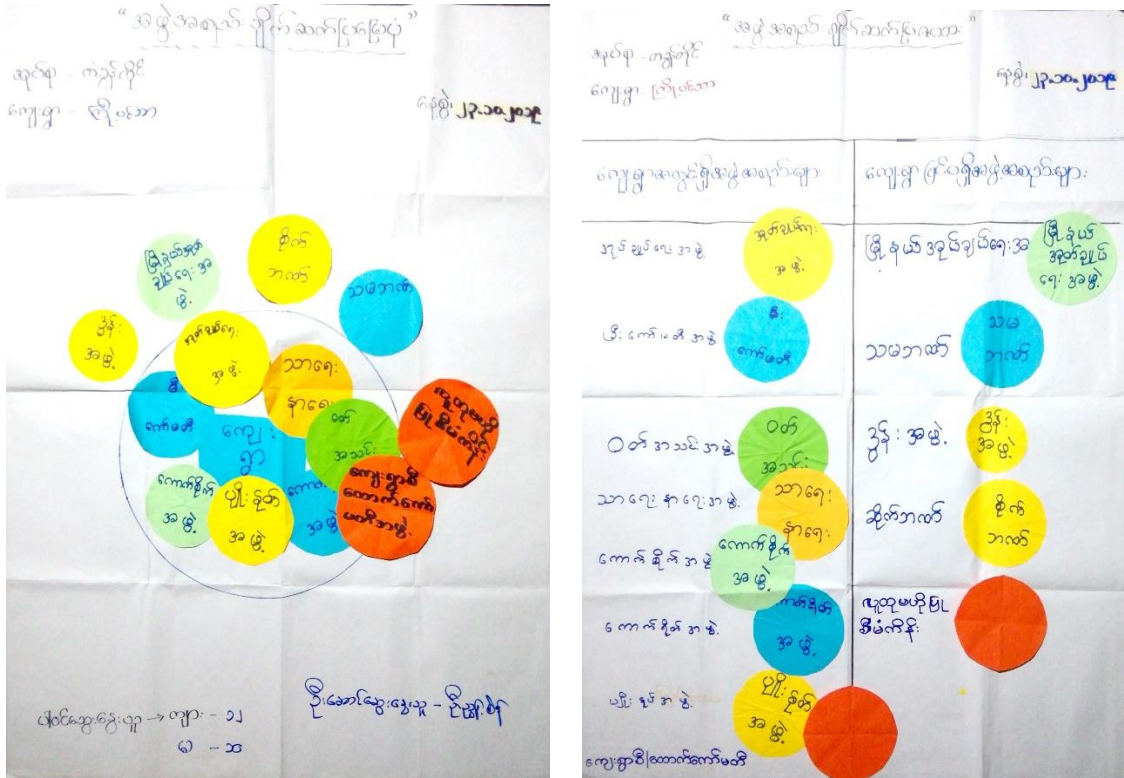 "အဖွဲ့အစည်းချိတ်ဆက်ပြမြေပုံ"
အုပ်စု - တံခွန်တိုင်
ကျေးရွာ - ကြို့ပင်သာ
နေ့စွဲ၊ ၂၃.၁၀.၂၀၁၉
မြို့နယ်အုပ်
ချုပ်ရေးအ
ဖွဲ့
စိုက်
ဘဏ်
သမဘဏ်
ဒွန်း
အဖွဲ့
အုပ်ချုပ်ရေး
အဖွဲ့
သာရေး
နာရေး
မီး
ကော်မတီ
ကျေး
ရွာ
ဝတ်
အသင်း
လူထုဗဟို
ပြုစီမံကိန်း
ကောက်စိုက်
အဖွဲ့
ပျိုးနုတ်
အဖွဲ့
အဖွဲ့
ကျေးရွာစီ
ထောက်ကော်
မတီအဖွဲ့
ဦးဆောင်ဆွေးနွေးသူ -
ပါဝင်ဆွေးနွေးသူ → ကျား - ၁၂
မ -
"အဖွဲ့အစည်းချိတ်ဆက်ပြဇယား"
အုပ်စု - တံခွန်တိုင်
ကျေးရွာ - ကြို့ပင်သာ
နေ့စွဲ၊ ၂၃.၁၀.၂၀၁၉
ကျေးရွာအတွင်းရှိအဖွဲ့အစည်းများ
ကျေးရွာပြင်ပရှိအဖွဲ့အစည်းများ
အုပ်ချုပ်ရေးအဖွဲ့
အုပ်ချုပ်ရေး
အဖွဲ့
မြို့နယ်အုပ်ချုပ်ရေးအ
မြို့နယ်
အုပ်ချုပ်
ရေးအဖွဲ့
မီးကော်မတီအဖွဲ့
မီး
ကော်မတီ
သမဘဏ်
သမ
ဘဏ်
ဝတ်အသင်းအဖွဲ့
ဝတ်
အသင်း
ဒွန်းအဖွဲ့
ဒွန်း
အဖွဲ့
သာရေးနာရေးအဖွဲ့
သာရေး
နာရေး
ဆိုက်ဘဏ်
စိုက်
ဘဏ်
ကောက်စိုက်အဖွဲ့
ကောက်စိုက်
အဖွဲ့
လူထုဗဟိုပြု
စီမံကိန်း
ကောက်ရိတ်အဖွဲ့
ကောက်ရိတ်
အဖွဲ့
ပျိုးနုတ်အဖွဲ့
ပျိုးနုတ်
အဖွဲ့
ကျေးရွာစီ/ထောက်ကော်မတီ